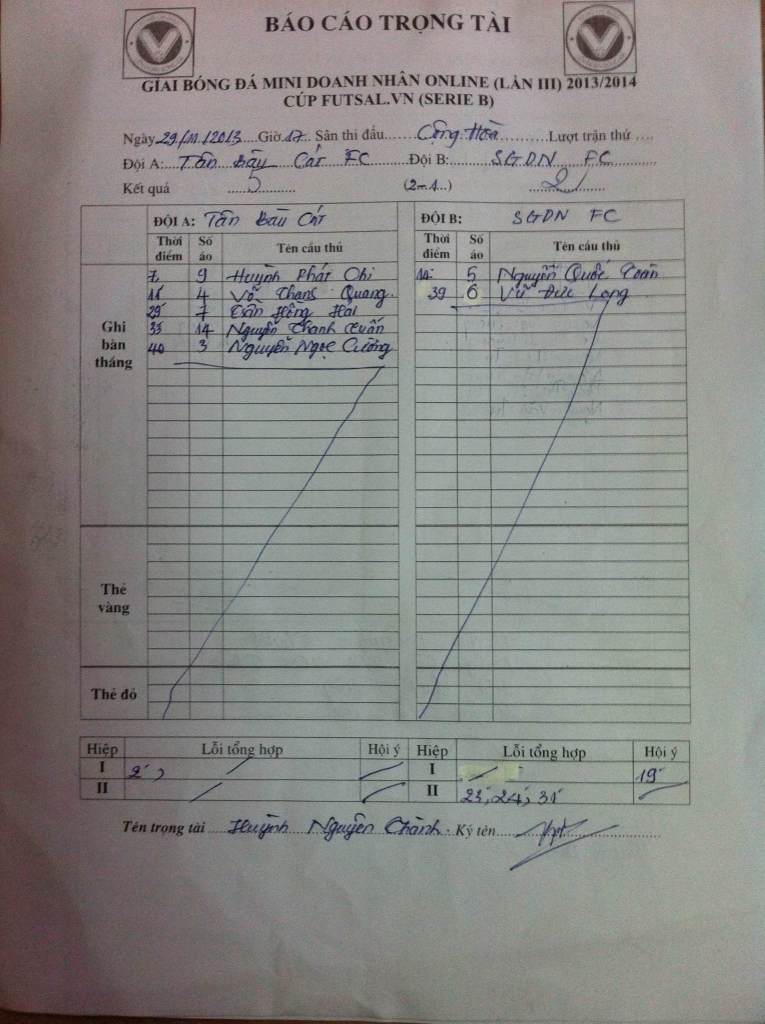 BÁO CÁO TRỌNG TÀI
GIẢI BÓNG ĐÁ MINI DOANH NHÂN ONLINE (LẦN III) 2013/2014
CÚP FUTSAL.VN (SERIE B)
Ngày 29/11/2013 Giờ 17 Sân thi đấu Cộng Hòa Lượt trận thứ
Đội A: Tân Bàu Cát FC Đội B: SGDN FC
Kết quả 5 (2-1) 2
ĐỘI A: Tân Bàu Cát ĐỘI B: SGDN FC
Thời điểm Số áo Tên cầu thủ Thời điểm Số áo Tên cầu thủ
Ghi bàn thắng
7 9 Huỳnh Phát Chi 5 Nguyễn Quốc Toàn
4 Võ Thanh Quang 39 6 Vũ Đức Long
7 Trần Hồng Hải
14 Nguyễn Thanh Tuấn
40 3 Nguyễn Ngọc Cường
Thẻ vàng
Thẻ đỏ
Hiệp Lỗi tổng hợp Hội ý Hiệp Lỗi tổng hợp Hội ý
I 2' I 19'
II II 23', 24', 31'
Tên trọng tài Huỳnh Nguyên Thành Ký tên